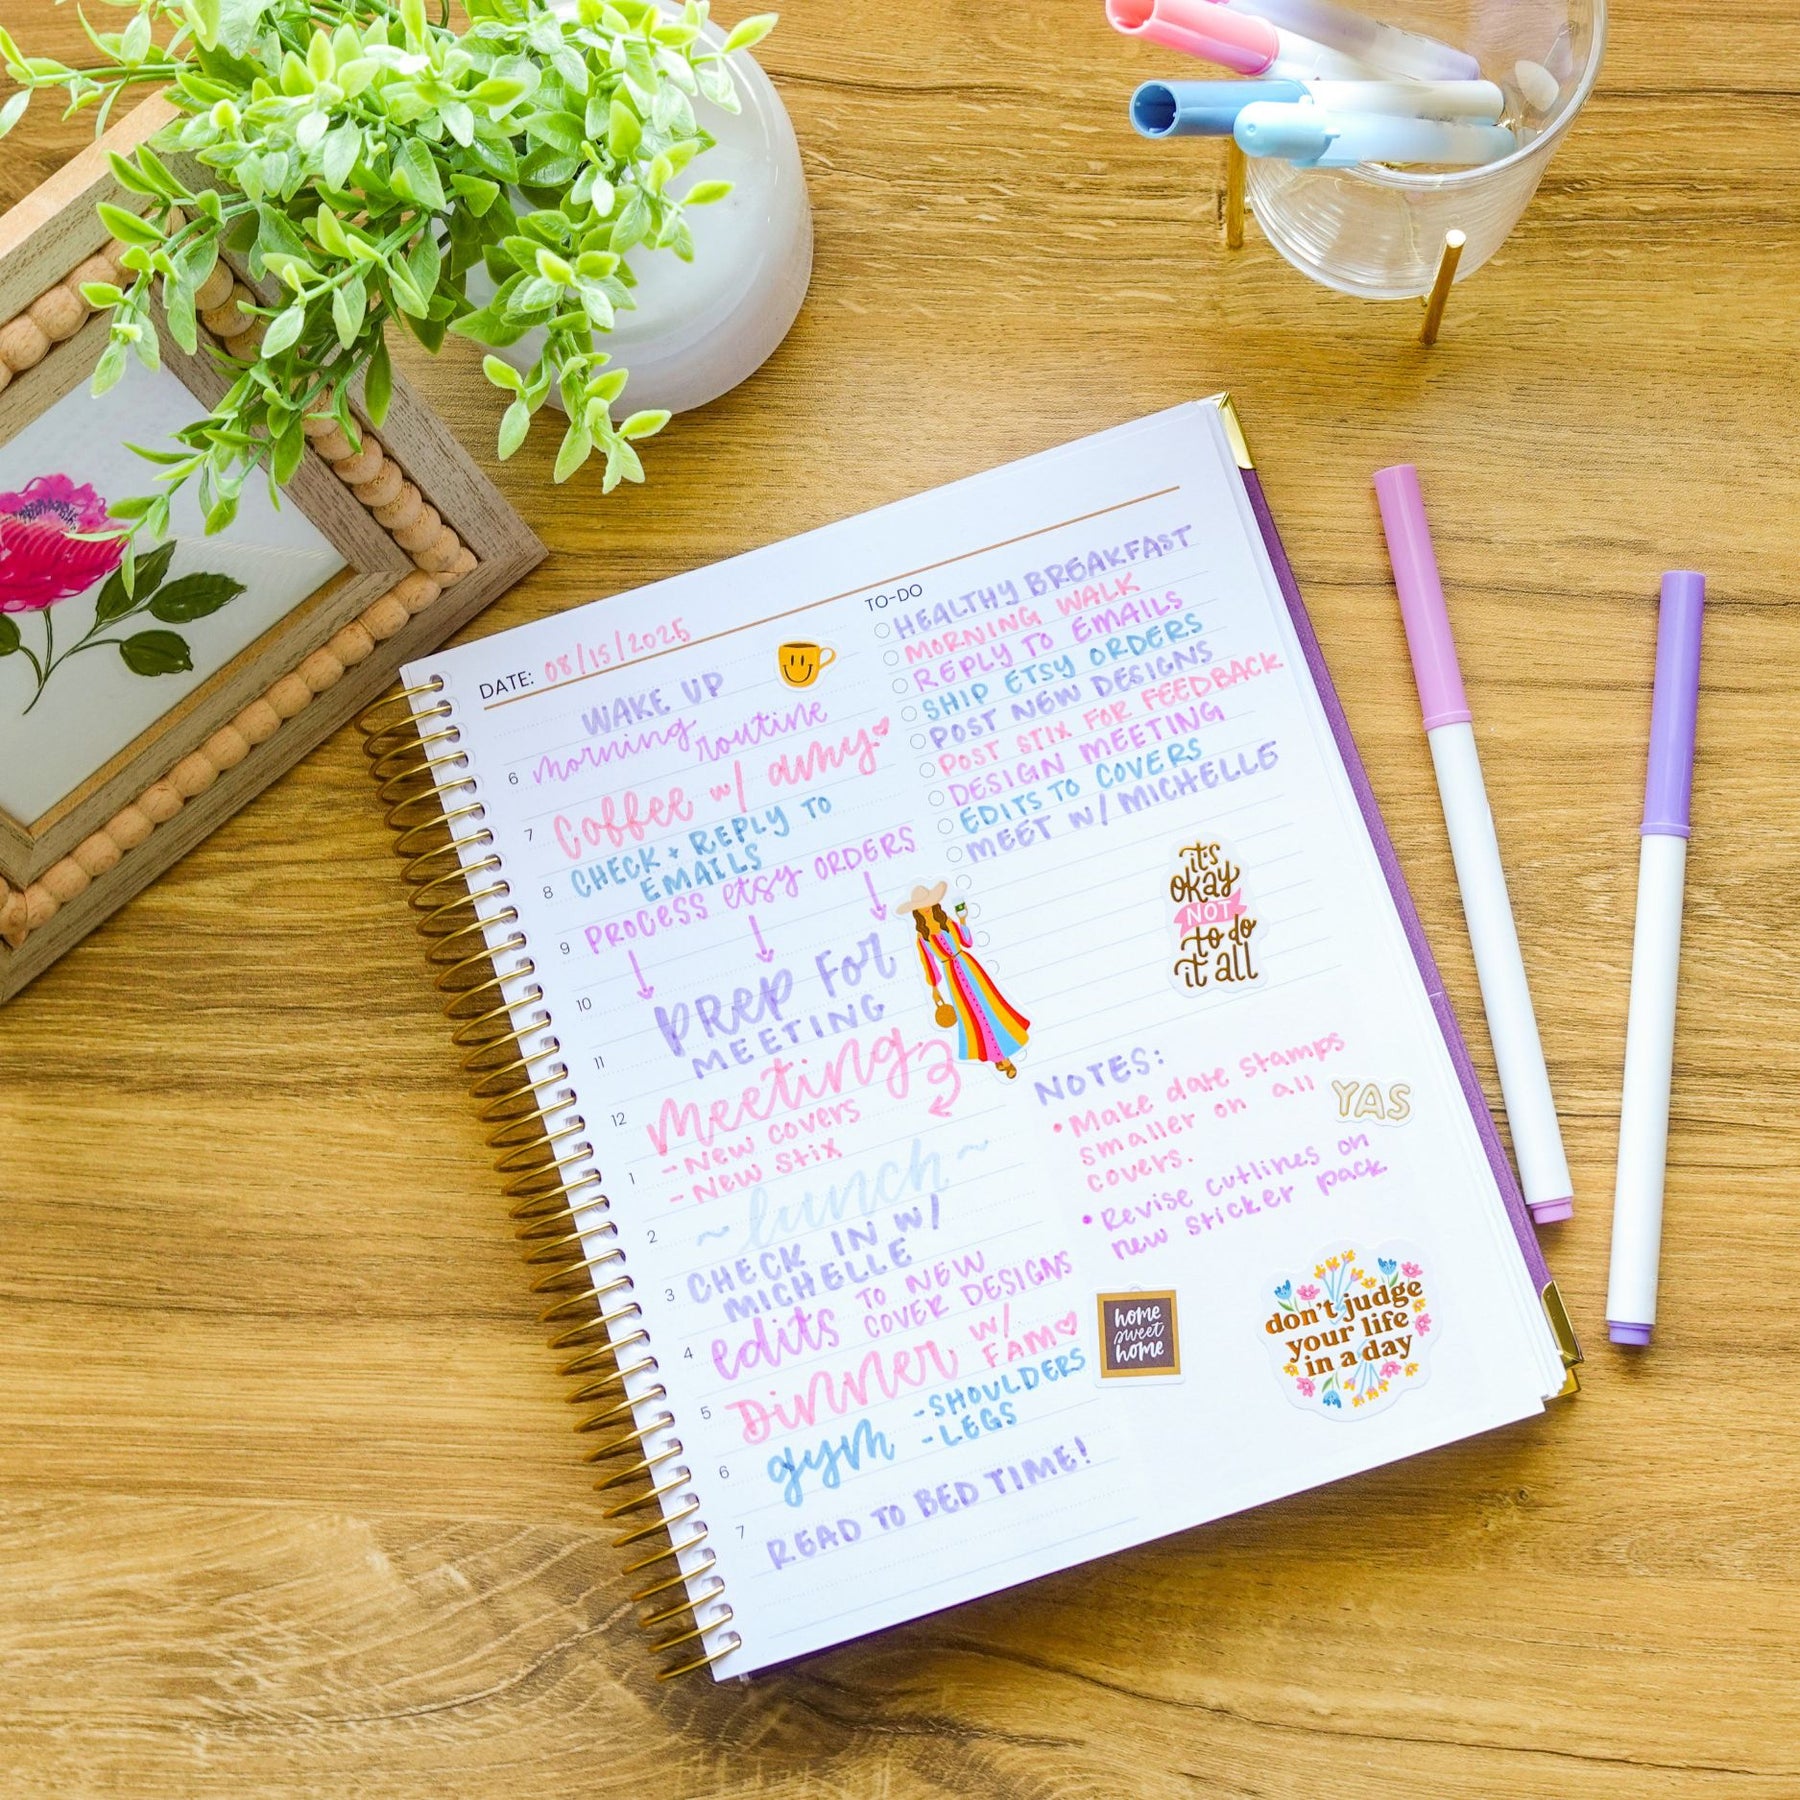 DATE: 08/15/2025
WAKE UP
6 morning routine
7 Coffee w/ amy
CHECK + REPLY TO
8 EMAILS
9 PROCESS etsy ORDERS
10 PREP FOR
11 MEETING
12 Meeting
- New covers
1 - New stix
2 ~ lunch ~
CHECK IN W/
3 MICHELLE
4 edits TO NEW
COVER DESIGNS
5 Dinner w/
FAM
6 gym - SHOULDERS
- LEGS
7 READ TO BED TIME!
TO-DO
HEALTHY BREAKFAST
MORNING WALK
REPLY TO EMAILS
SHIP ETSY ORDERS
POST NEW DESIGNS
POST STIX FOR FEEDBACK
DESIGN MEETING
EDITS TO COVERS
MEET W/ MICHELLE
it's
okay
NOT
to do
it all
NOTES:
• Make date stamps
smaller on all
covers.
• Revise cutlines on
new sticker pack
YAS
home
sweet
home
don't judge
your life
in a day